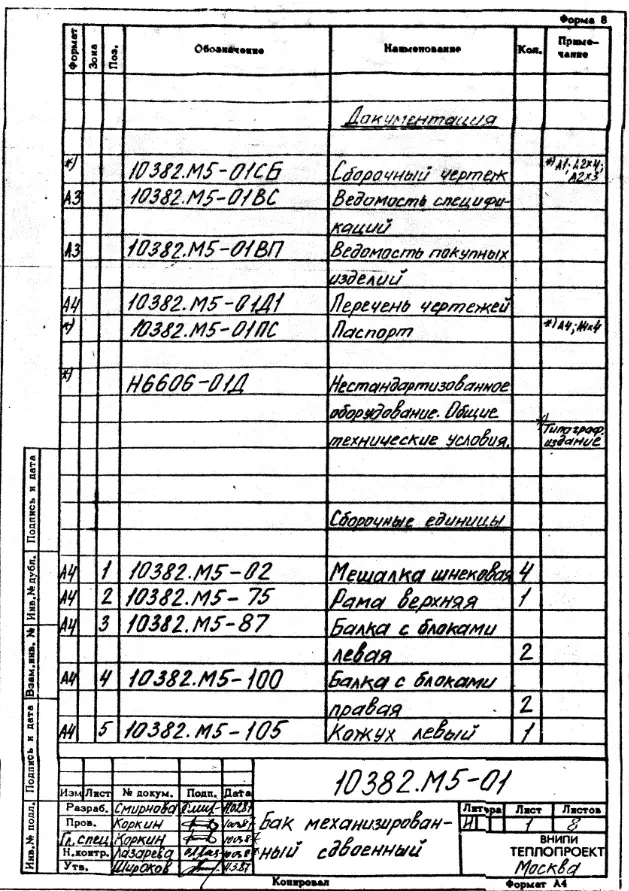 Форма 8
Формат Зона Поз. Обозначение Наименование Кол. Примечание
Документация
*) 10382.М5-01СБ Сборочный чертеж *) А1; А2х4;
А2х3
А3 10382.М5-01ВС Ведомость специфи-
каций
А3 10382.М5-01ВП Ведомость покупных
изделий
А4 10382.М5-01Д1 Перечень чертежей
*) 10382.М5-01ПС Паспорт *) А4; А4х4
*) Н6606-01Д Нестандартизованное
оборудование. Общие
технические условия. Типограф.
издание
Сборочные единицы
А4 1 10382.М5-02 Мешалка шнековая 4
А4 2 10382.М5-75 Рама верхняя 1
А4 3 10382.М5-87 Балка с блоками
левая 2
А4 4 10382.М5-100 Балка с блоками
правая 2
А4 5 10382.М5-105 Кожух левый 1
Подпись и дата
Инв.№ дубл.
Взам.инв. №
Подпись и дата
Инв.№ подл.
10382.М5-01
Изм Лист № докум. Подп. Дата
Разраб. Смирнова
Пров. Коркин
Гл. спец. Коркин
Н.контр. Лазарева
Утв. Широков
Бак механизирован-
ный сдвоенный
Литера Лист Листов
И 1 8
ВНИПИ
ТЕПЛОПРОЕКТ
Москва
Копировал Формат А4